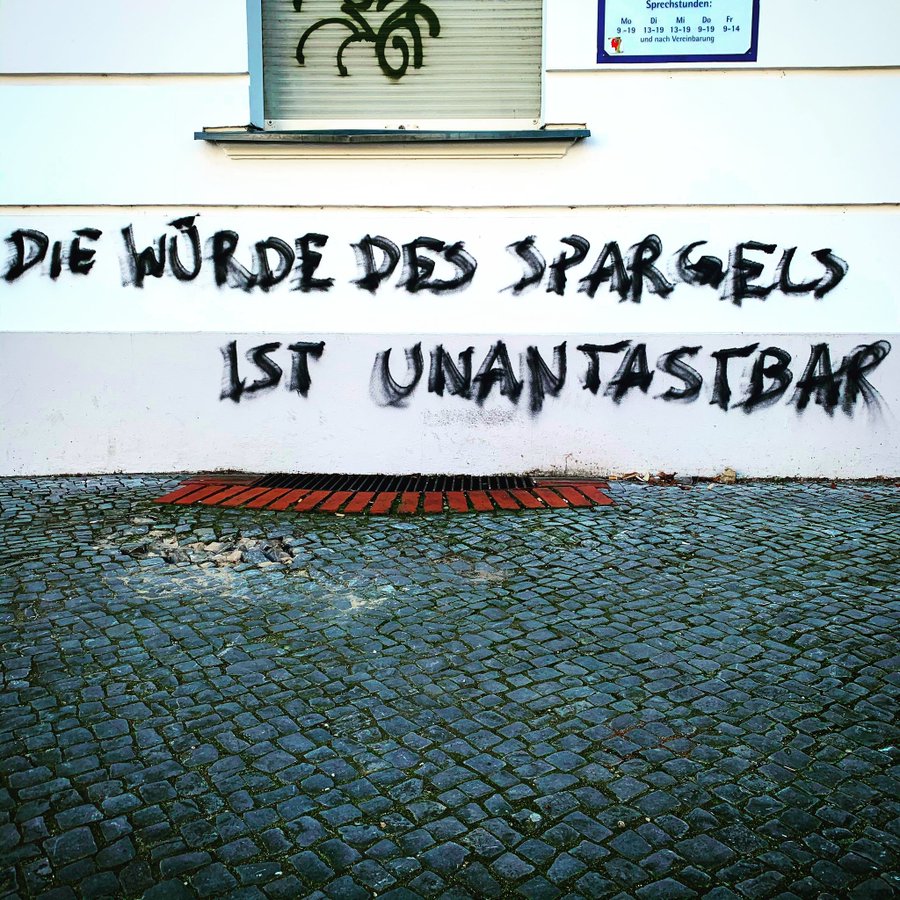 Sprechstunden:
Mo Di Mi Do Fr
9-19 13-19 13-19 9-19 9-14
und nach Vereinbarung
DIE WÜRDE DES SPARGELS
IST UNANTASTBAR